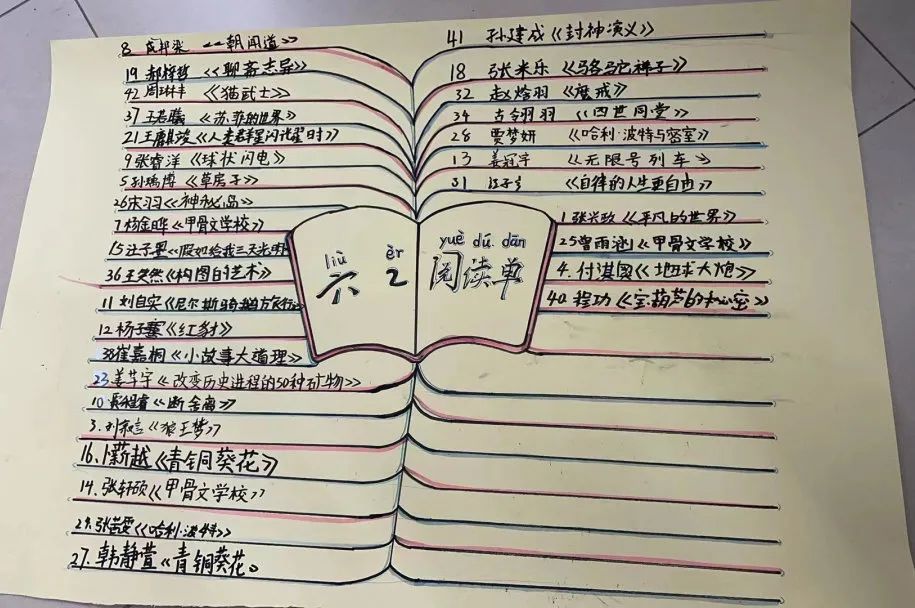 8 成邦梁 《朝闻道》
19 郝梓哲 《聊斋志异》
42 周琳丰 《猫武士》
37 王若曦 《苏菲的世界》
21 王麒竣 《人类群星闪耀时》
9 张睿洋 《球状闪电》
5 孙瑞博 《草房子》
26 宋羽 《神秘岛》
7 杨金晔 《甲骨文学校》
15 子墨 《假如给我三天光明
36 王奕然 《构图的艺术》
11 刘自实 《尼尔斯骑鹅旅行记
12 杨子骞 《红豺》
38 崔嘉桐 《小故事大道理》
23 姜芊宇 《改变历史进程的50种矿物》
10 程睿 《断舍离》
3. 刘 《狼王梦》
16. 靳越 《青铜葵花》
14. 张轩硕 《甲骨文学校》
29. 张芸雯 《哈利·波特》
27. 韩静萱 《青铜葵花》
liù èr
六 2
yuè dú dān
阅读单
41 孙建成 《封神演义》
18 张米乐 《骆驼祥子》
32 赵烚羽 《魔戒》
34 古翎羽 《四世同堂》
28 贾梦妍 《哈利·波特与密室》
13 姜冠宇 《无限号列车》
31 江子 《自律的人生更自由》
1. 张兴致 《平凡的世界》
25 曾雨涵 《甲骨文学校》
4. 付淇国 《地球大炮》
40. 程功 《宝葫芦的秘密》